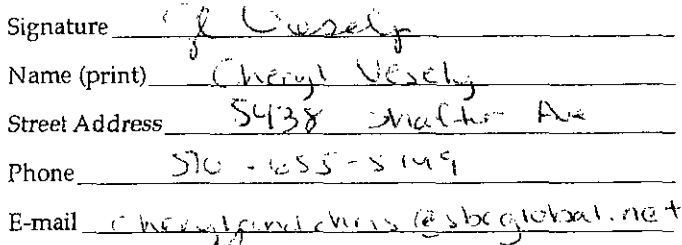 Signature Vesely
Name (print) Cheryl Vesely
Street Address 5438 Ave
Phone
E-mail cherylandchris@sbcglobal.net